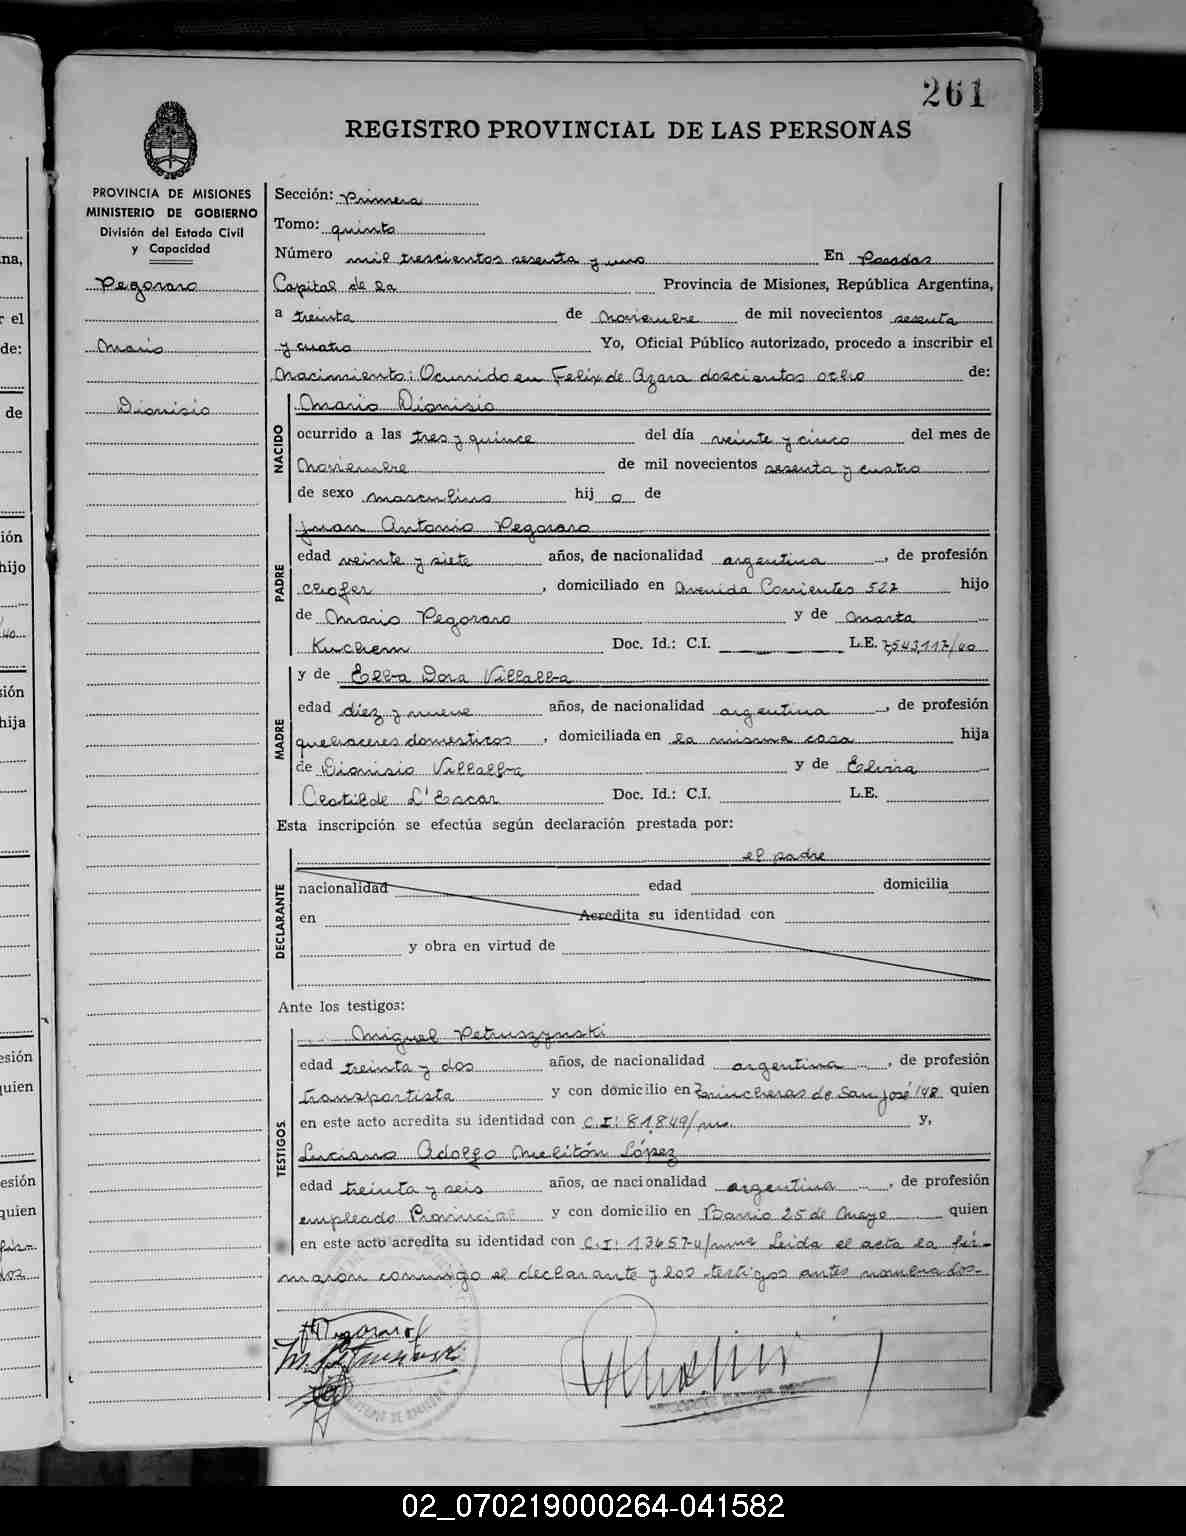 261
REGISTRO PROVINCIAL DE LAS PERSONAS
PROVINCIA DE MISIONES
MINISTERIO DE GOBIERNO
División del Estado Civil
y Capacidad
Pegoraro
Mario
Dionisio
Sección: Primera
Tomo: quinto
Número mil trescientos sesenta y uno En Posadas
Capital de la Provincia de Misiones, República Argentina,
a treinta de noviembre de mil novecientos sesenta
y cuatro Yo, Oficial Público autorizado, procedo a inscribir el
Nacimiento: Ocurrido en Felix de Azara doscientos ocho de:
NACIDO
Mario Dionisio
ocurrido a las tres y quince del día veinte y cinco del mes de
Noviembre de mil novecientos sesenta y cuatro
de sexo masculino hij o de
PADRE
Juan Antonio Pegoraro
edad veinte y siete años, de nacionalidad argentina, de profesión
chofer, domiciliado en Avenida Corrientes 527 hijo
de Mario Pegoraro y de Marta
Kuchem Doc. Id.: C.I. L.E. 7,543,117/40
MADRE
y de Elba Dora Villalba
edad diez y nueve años, de nacionalidad argentina, de profesión
quehaceres domesticos, domiciliada en la misma casa hija
de Dionisio Villalba y de Elvira
Clotilde L'Escar Doc. Id.: C.I. L.E.
Esta inscripción se efectúa según declaración prestada por:
DECLARANTE
el padre
nacionalidad edad domicilia
en Acredita su identidad con
y obra en virtud de
Ante los testigos:
TESTIGOS
Miguel Petruszynski
edad treinta y dos años, de nacionalidad argentina, de profesión
transportista y con domicilio en Trincheras de San José 148 quien
en este acto acredita su identidad con C.I: 81,849/ y,
Luciano Adolfo Melitón López
edad treinta y seis años, de nacionalidad argentina, de profesión
empleado Provincial y con domicilio en Barrio 25 de Mayo quien
en este acto acredita su identidad con C.I: 13657-u/ Leida el acta la fir-
maron conmigo el declarante y los testigos antes nombrados-
Pegoraro
M. Petruszynski
02_070219000264-041582